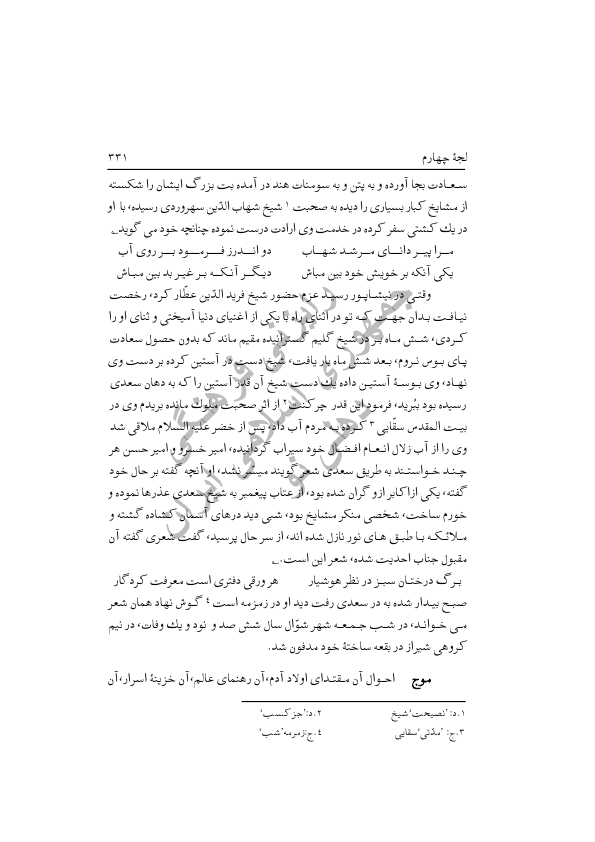 لجهٔ چهارم ۳۳۱
سعادت بجا آورده و به پتن و به سومنات هند در آمده بت بزرگ ایشان را شکسته
از مشایخ کبار بسیاری را دیده به صحبت ۱ شیخ شهاب الدّین سهروردی رسیده، با او
در یك کشتی سفر کرده در خدمت وی ارادت درست نموده چنانچه خود می گوید؎
مرا پیر دانای مرشد شهاب دو اندرز فرمود بر روی آب
یکی آنکه بر خویش خود بین مباش دیگر آنکه بر غیر بد بین مباش
وقتی در نیشاپور رسید عزم حضور شیخ فرید الدّین عطّار کرد، رخصت
نیافت بدان جهت که تو در اثنای راه با یکی از اغنیای دنیا آمیختی و ثنای او را
کردی، شش ماه بر در شیخ گلیم گسترانیده مقیم ماند که بدون حصول سعادت
پای بوس نروم، بعد شش ماه بار یافت، شیخ دست در آستین کرده بر دست وی
نهاد، وی بوسهٔ آستین داده یك دست شیخ آن قدر آستین را که به دهان سعدی
رسیده بود ببُرید، فرمود این قدر چرکنت۲ از اثر صحبت ملوك مانده بریدم وی در
بیت المقدس سقّایی ۳ کرده به مردم آب داد، پس از خضر علیه السلام ملاقی شد
وی را از آب زلال انعام افضال خود سیراب گردانیده، امیر خسرو و امیر حسن هر
چند خواستند به طریق سعدی شعر گویند میسّر نشد، او آنچه گفته بر حال خود
گفته، یکی ازاکابر ازو گران شده بود، از عتاب پیغمبر به شیخ سعدی عذرها نموده و
خورم ساخت، شخصی منکر مشایخ بود، شبی دید درهای آسمان کشاده گشته و
ملائکه با طبق های نور نازل شده اند، از سر حال پرسید، گفت شعری گفته آن
مقبول جناب احدیت شده، شعر این است.؎
برگ درختان سبز در نظر هوشیار هر ورقی دفتری است معرفت کردگار
صبح بیدار شده به در سعدی رفت دید او در زمزمه است ٤ گوش نهاد همان شعر
می خواند، در شب جمعه شهر شوّال سال شش صد و نود و یك وفات، در نیم
کروهی شیراز در بقعه ساختهٔ خود مدفون شد.
موج احوال آن مقتدای اولاد آدم،آن رهنمای عالم،آن خزینهٔ اسرار،آن
۱.د:'نصیحت'شیخ ۲.د:'جزکسب'
۳.ج: 'مدّتی'سقایی ٤.ج:زمرمه'شب'
جمهوری اسلامی ایران